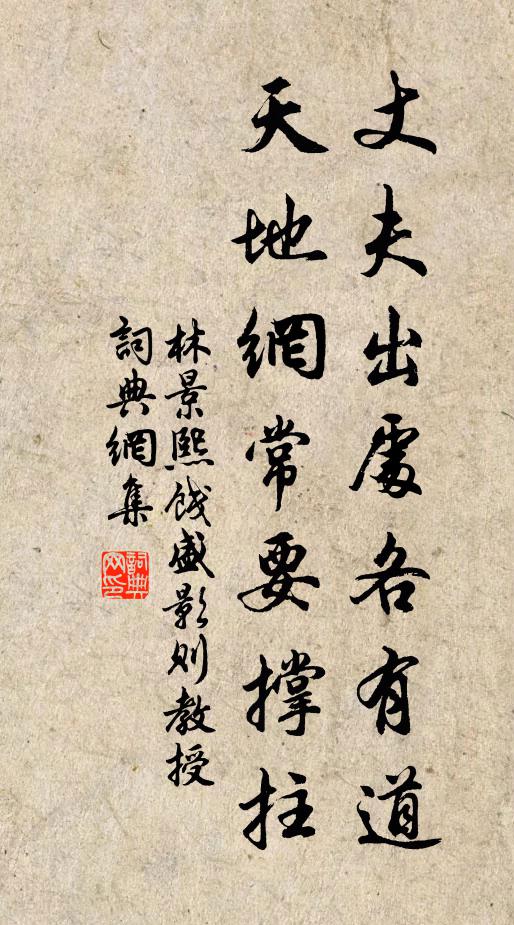 丈夫出處各有道
天地網常要撐拄
林景熙餞盛影則教授
詞典網集
詞典网印